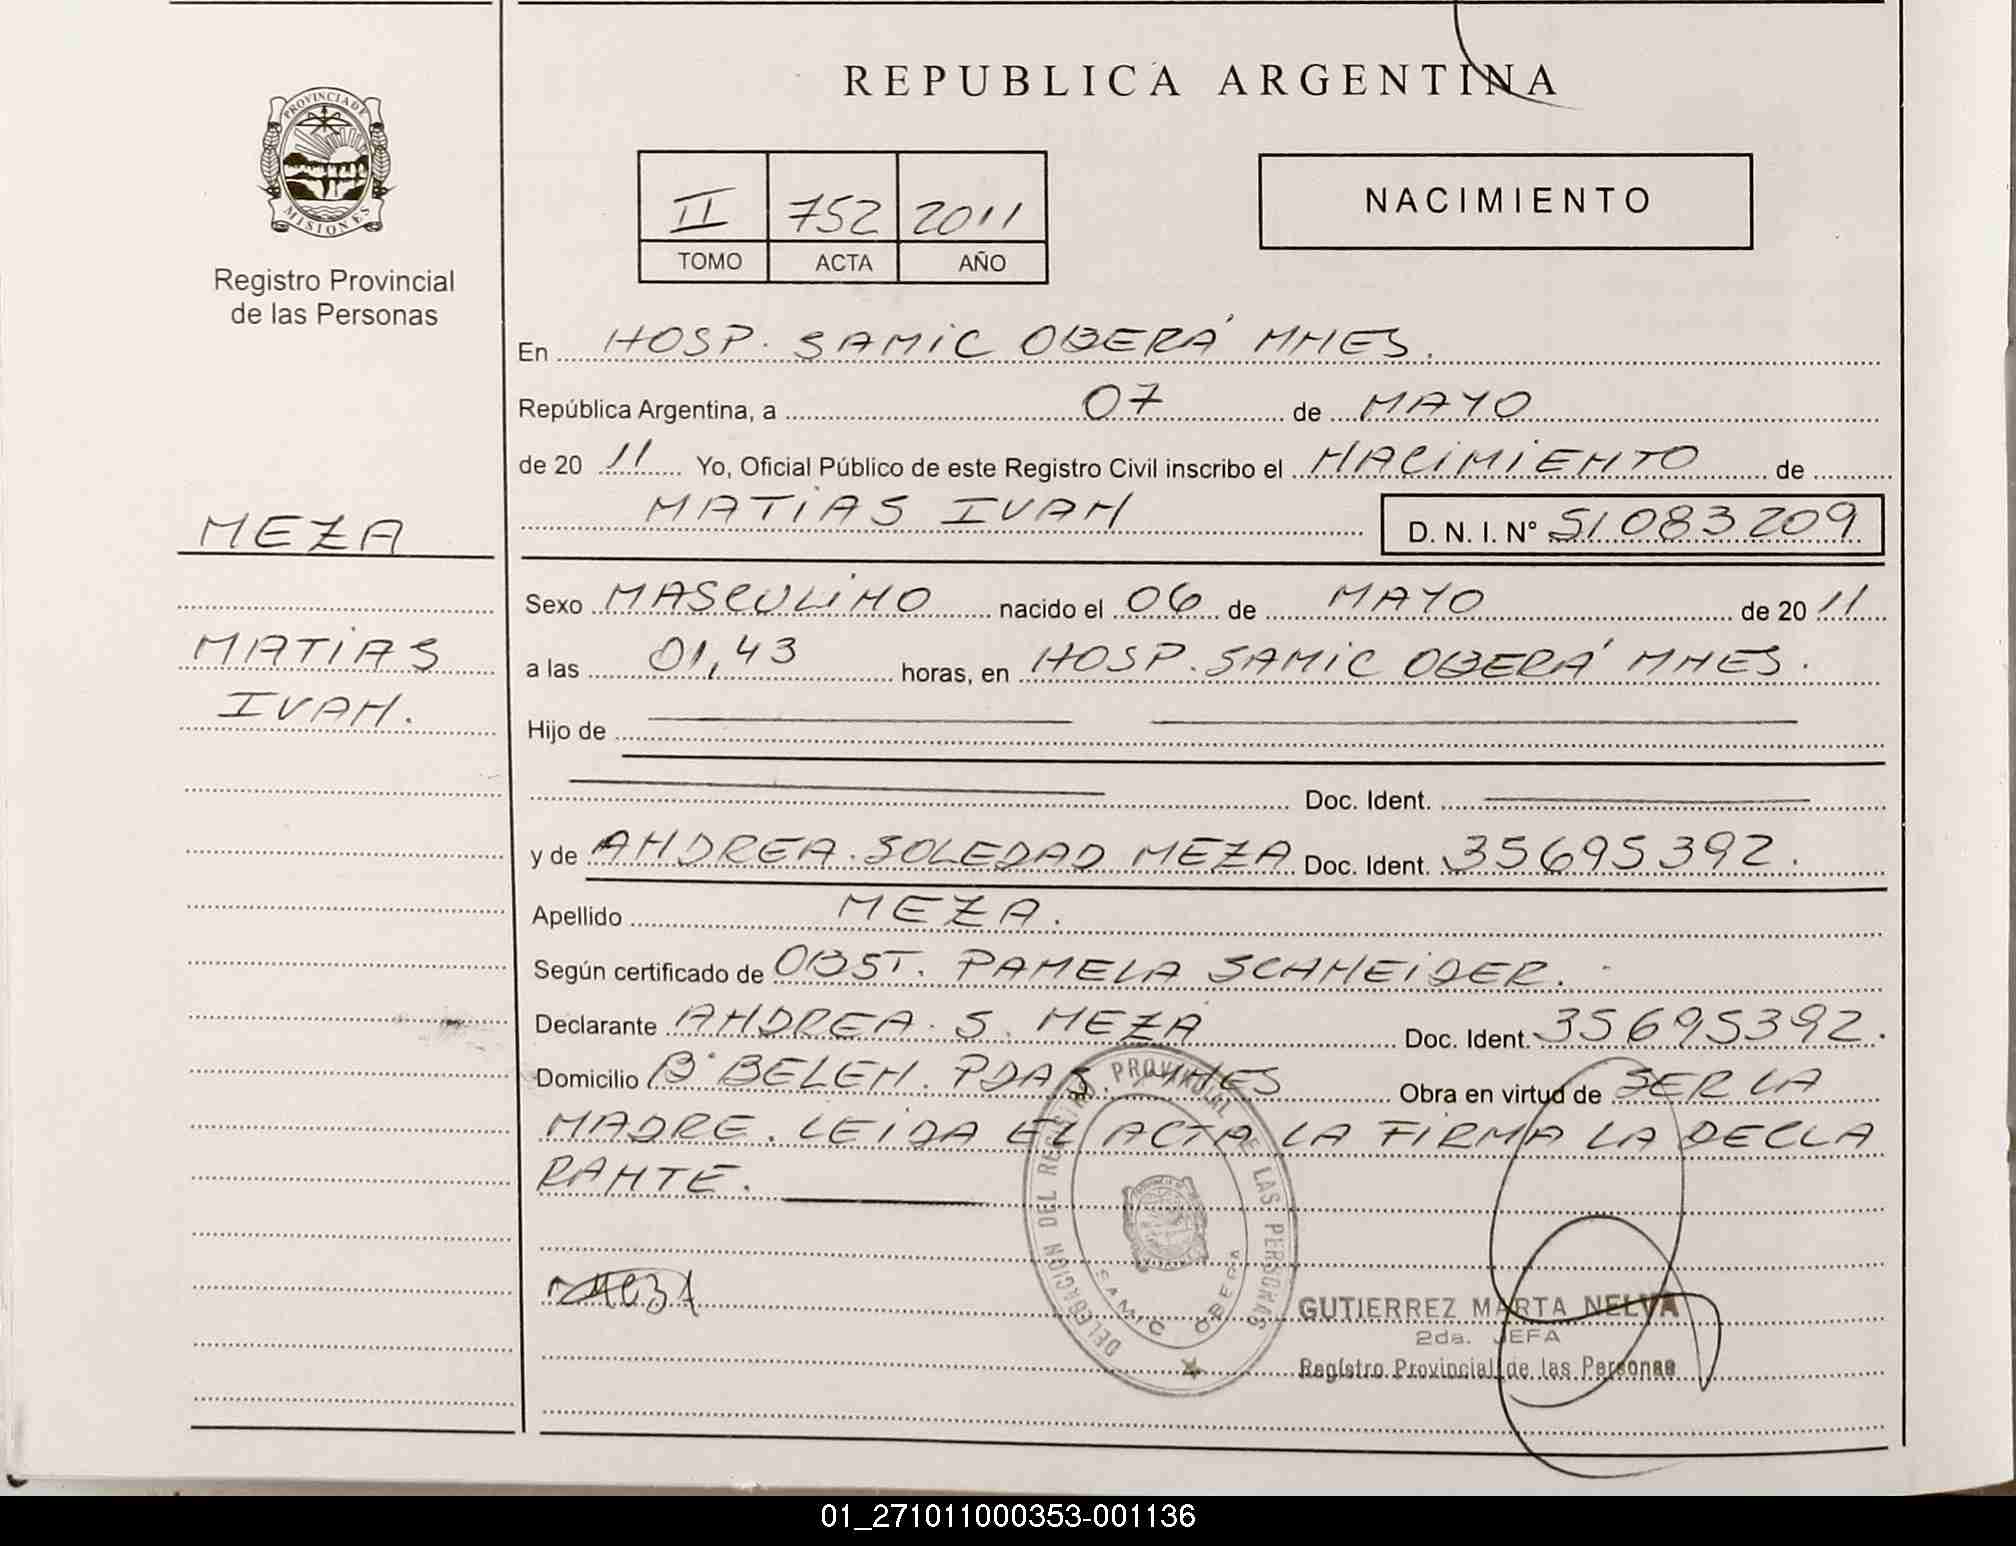 REPUBLICA ARGENTINA
PROVINCIA DE
MISIONES
Registro Provincial
de las Personas
II 752 2011
TOMO ACTA AÑO
NACIMIENTO
En HOSP. SAMIC OBERÁ MNES.
República Argentina, a 07 de MAYO
de 20 11 Yo, Oficial Público de este Registro Civil inscribo el NACIMIENTO de
MATIAS IVAN D. N. I. N° 51083209
MEZA
MATIAS
IVAN.
Sexo MASCULINO nacido el 06 de MAYO de 20 11
a las 01,43 horas, en HOSP. SAMIC OBERÁ MNES.
Hijo de
Doc. Ident.
y de ANDREA. SOLEDAD MEZA Doc. Ident. 35695392.
Apellido MEZA.
Según certificado de OBST. PAMELA SCHNEIDER.
Declarante ANDREA. S. MEZA Doc. Ident. 35695392.
Domicilio B° BELEN. PDAS. MNES Obra en virtud de SER LA
MADRE. LEIDA EL ACTA LA FIRMA LA DECLA
RANTE.
DELEGACION DEL REGISTRO PROVINCIAL DE LAS PERSONAS
SAMIC OBERA
Meza
GUTIERREZ MARTA NELVA
2da. JEFA
Registro Provincial de las Personas
01_271011000353-001136